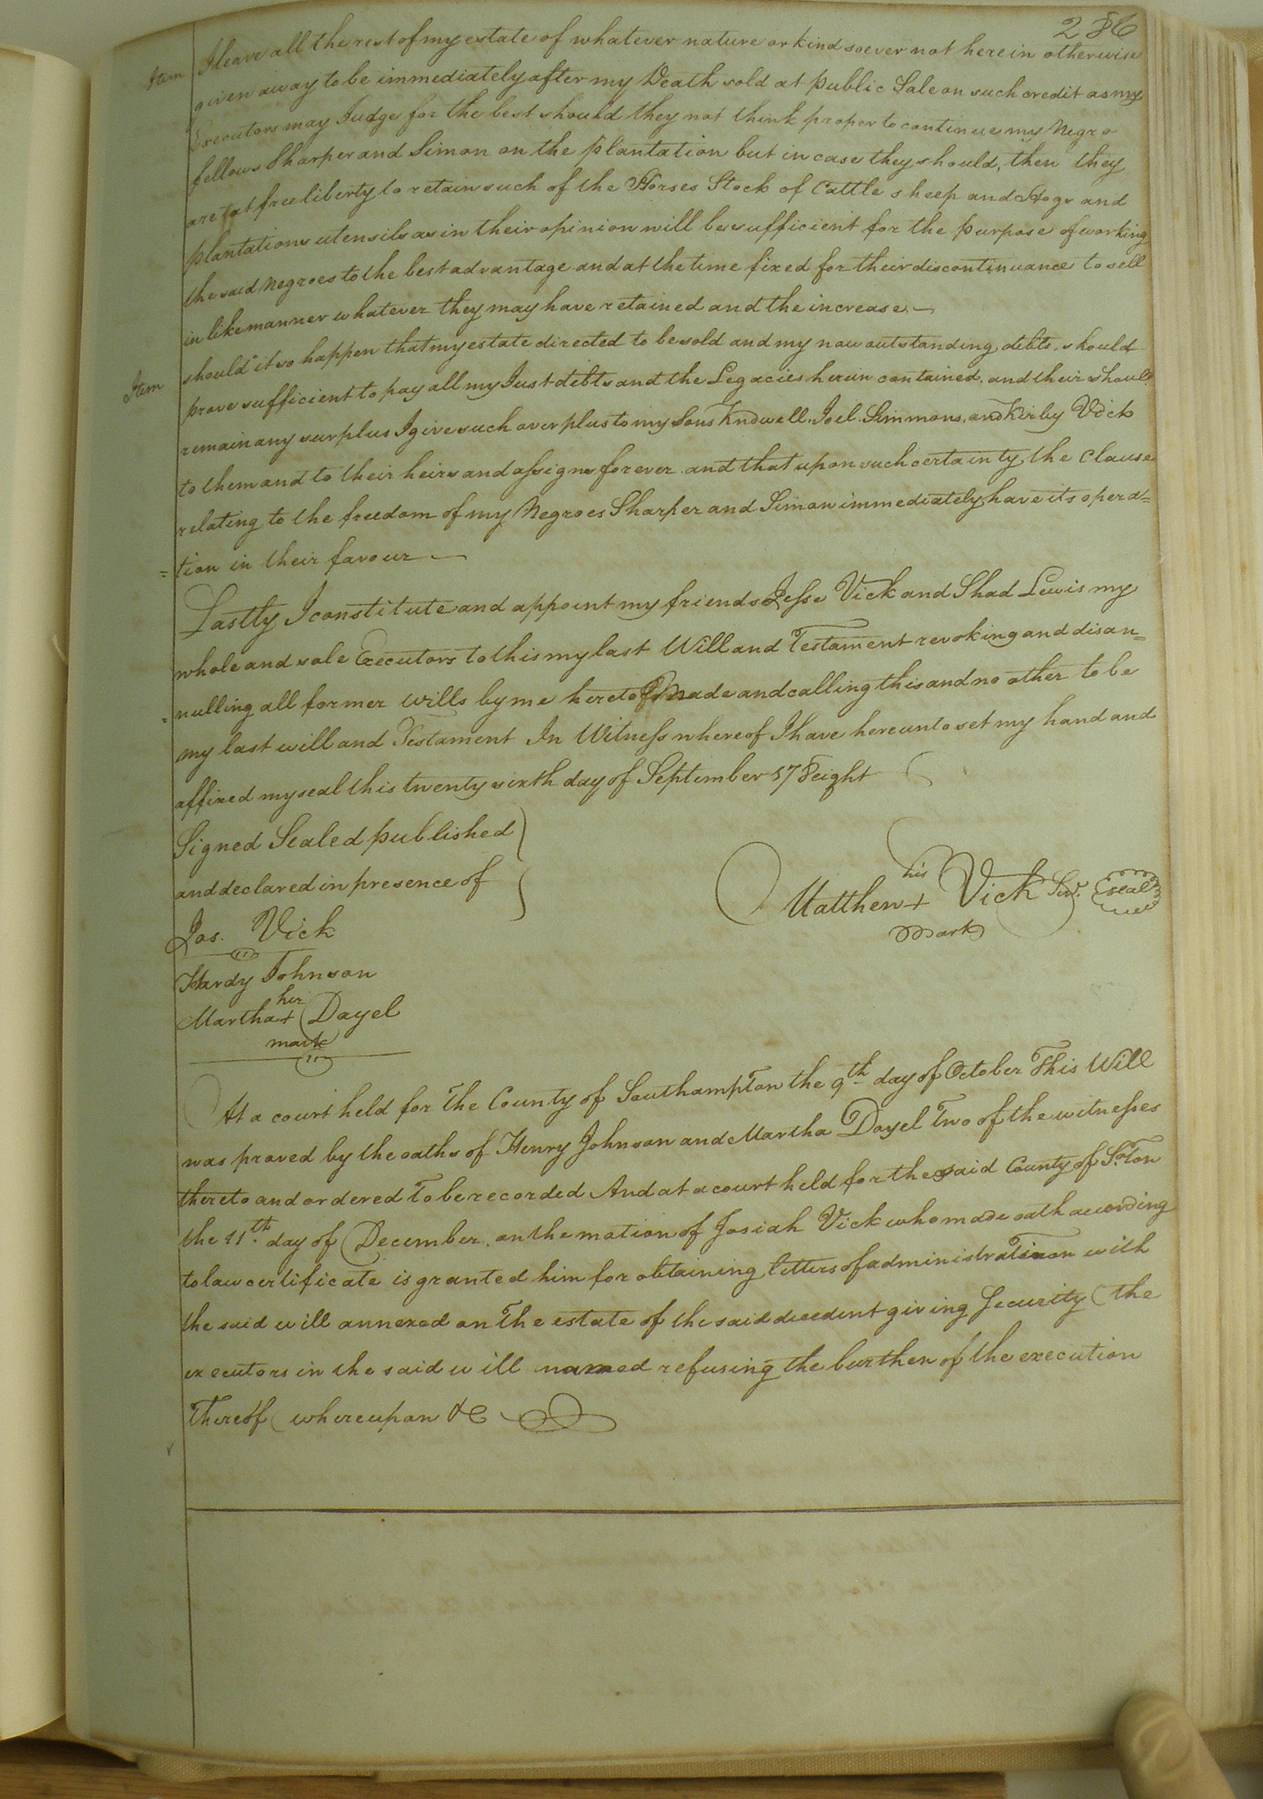 286
Item I leave all the rest of my estate of whatever nature or kind soever not herein otherwise
given away to be immediately after my Death sold at public Sale on such credit as my
Executors may Judge for the best should they not think proper to continue my Negro
fellows Sharper and Simon on the plantation but in case they should, then they
are at free liberty to retain such of the Horses Stock of Cattle sheep and Hogs and
plantations utensils as in their opinion will be sufficient for the purpose of working
the said Negroes to the best advantage and at the time fixed for their discontinuance to sell
in like manner whatever they may have retained and the increase. —
Item should it so happen that my estate directed to be sold and my now outstanding debts, should
prove sufficient to pay all my Just debts and the Legacies herein contained, and their should
remain any surplus I give such overplus to my Sons Joel. Simmons. and Kirby Vick
to them and to their heirs and assigns forever and that upon such certainty the Clause
relating to the freedom of my Negroes Sharper and Simon immediately have its opera=
=tion in their favour —
Lastly I constitute and appoint my friends Jesse Vick and Shad Lewis my
whole and sole Executors to this my last Will and Testament revoking and disan=
=nulling all former wills by me heretofore made and calling this and no other to be
my last will and Testament In Witness whereof I have hereunto set my hand and
affixed my seal this twenty sixth day of September 178eight
Signed Sealed published
and declared in presence of
his
Matthew + Vick Senr. (seal)
mark
Jos. Vick
Hardy Johnson
her
Martha + Dayel
mark
At a court held for the County of Southampton the 9th day of October This Will
was proved by the oaths of Henry Johnson and Martha Dayel Two of the witnesses
thereto and ordered To be recorded And at a court held for the said County of So.Ton
the 11th. day of December. on the motion of Josiah Vick who made oath according
to law certificate is granted him for obtaining letters of administration with
the said will annexed on The estate of the said decedent giving Security (the
executors in the said will named refusing the burthen of the execution
Thereof (whereupon &C